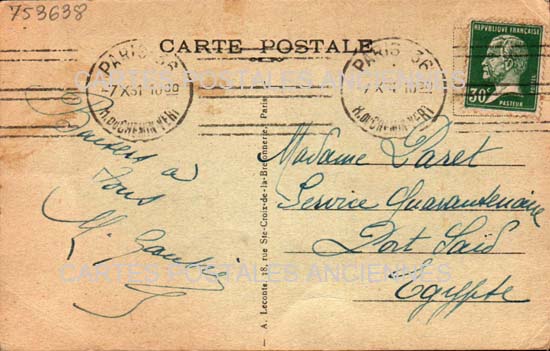 753638
CARTE POSTALE
PARIS 36
7 X 31 10
R. DU CHEMIN VERT
PARIS 36
7 X 31 10
R. DU CHEMIN VERT
REPUBLIQUE FRANÇAISE
POSTES
30c
PASTEUR
CARTES POSTALES ANCIENNES
Baisers à
tous
M.
Madame Paret
Service Quarantenaire
Port Saïd
Egypte
A. Leconte, 18, rue Ste-Croix-de-la-Bretonnerie, Paris
CARTES POSTALES ANCIENNES